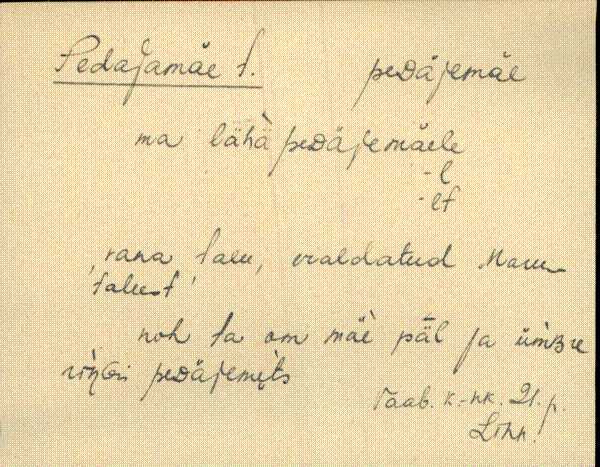 Pedajamäe t. peᴅäjemäe
ma lähä̀ peᴅäjemäele
-l
-lt
‚vana talu, eraldatud Maru
talust‘
noh ta om mäe päl ja ümʙre
riŋɢi peᴅäjemets
Vaab. k.-nk. 21. p.
Linn.